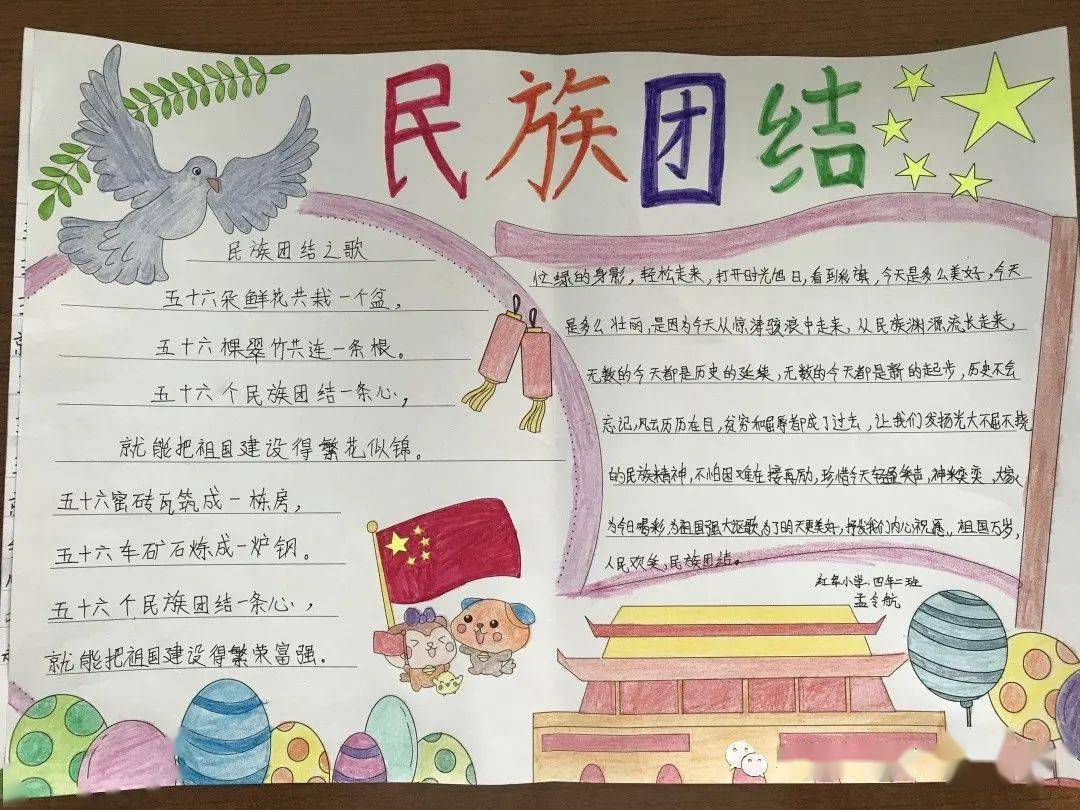 民族团结
民族团结之歌
五十六朵鲜花共栽一个盆，
五十六棵翠竹共连一条根。
五十六个民族团结一条心，
就能把祖国建设得繁花似锦。
五十六窑砖瓦筑成一栋房，
五十六车矿石炼成一炉钢。
五十六个民族团结一条心，
就能把祖国建设得繁荣富强。
忙绿的身影，轻松走来，打开时光旭日，看到彩旗，今天是多么美好，今天
是多么壮丽，是因为今天从惊涛骇浪中走来，从民族渊源流长走来，
无数的今天都是历史的延续，无数的今天都是新的起步，历史不会
忘记，风云历历在目，贫穷和屈辱都成了过去，让我们发扬光大不屈不挠
的民族精神，不怕困难在接再励，珍惜今天轻盈笑声，神采奕奕，大家
为今日喝彩，为祖国强大讴歌，为了明天更美好，抒发我们内心祝愿。祖国万岁，
人民欢笑，民族团结。
小学 四年二班
孟令航